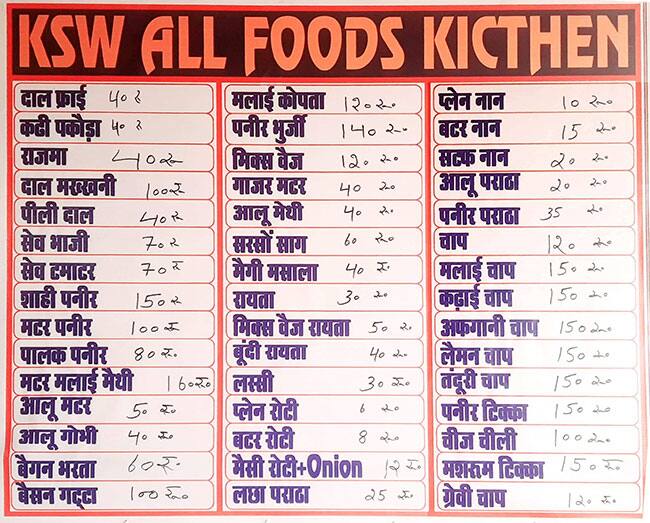 KSW ALL FOODS KICTHEN
दाल फ्राई 40 रु
कढी पकौड़ा 40 रु
राजमा 40 रु
दाल मख्खनी 100 रु
पीली दाल 40 रु
सेव भाजी 70 रु
सेव टमाटर 70 रु
शाही पनीर 150 रु
मटर पनीर 100 रु
पालक पनीर 80 रु०
मटर मलाई मैथी 160 रु०
आलू मटर 50 रु०
आलू गोभी 40 रु०
बैगन भरता 60 रु०
बैसन गट्टा 100 रु०
मलाई कोपता 120 रु०
पनीर भुर्जी 140 रु०
मिक्स वैज 120 रु०
गाजर मटर 40 रु०
आलू मेथी 40 रु०
सरसों साग 60 रु०
मैगी मसाला 40 रु०
रायता 30 रु०
मिक्स वैज रायता 50 रु०
बूंदी रायता 40 रु०
लस्सी 30 रु०
प्लेन रोटी 6 रु०
बटर रोटी 8 रु०
मैसी रोटी+Onion 12 रु०
लछा पराठा 25 रु०
प्लेन नान 10 रु०
बटर नान 15 रु०
सटफ नान 20 रु०
आलू पराठा 20 रु०
पनीर पराठा 35 रु०
चाप 120 रु०
मलाई चाप 150 रु०
कढ़ाई चाप 150 रु०
अफगानी चाप 150 रु०
लैमन चाप 150 रु०
तंदूरी चाप 150 रु०
पनीर टिक्का 150 रु०
चीज चीली 100 रु०
मशरूम टिक्का 150 रु०
ग्रेवी चाप 120 रु०